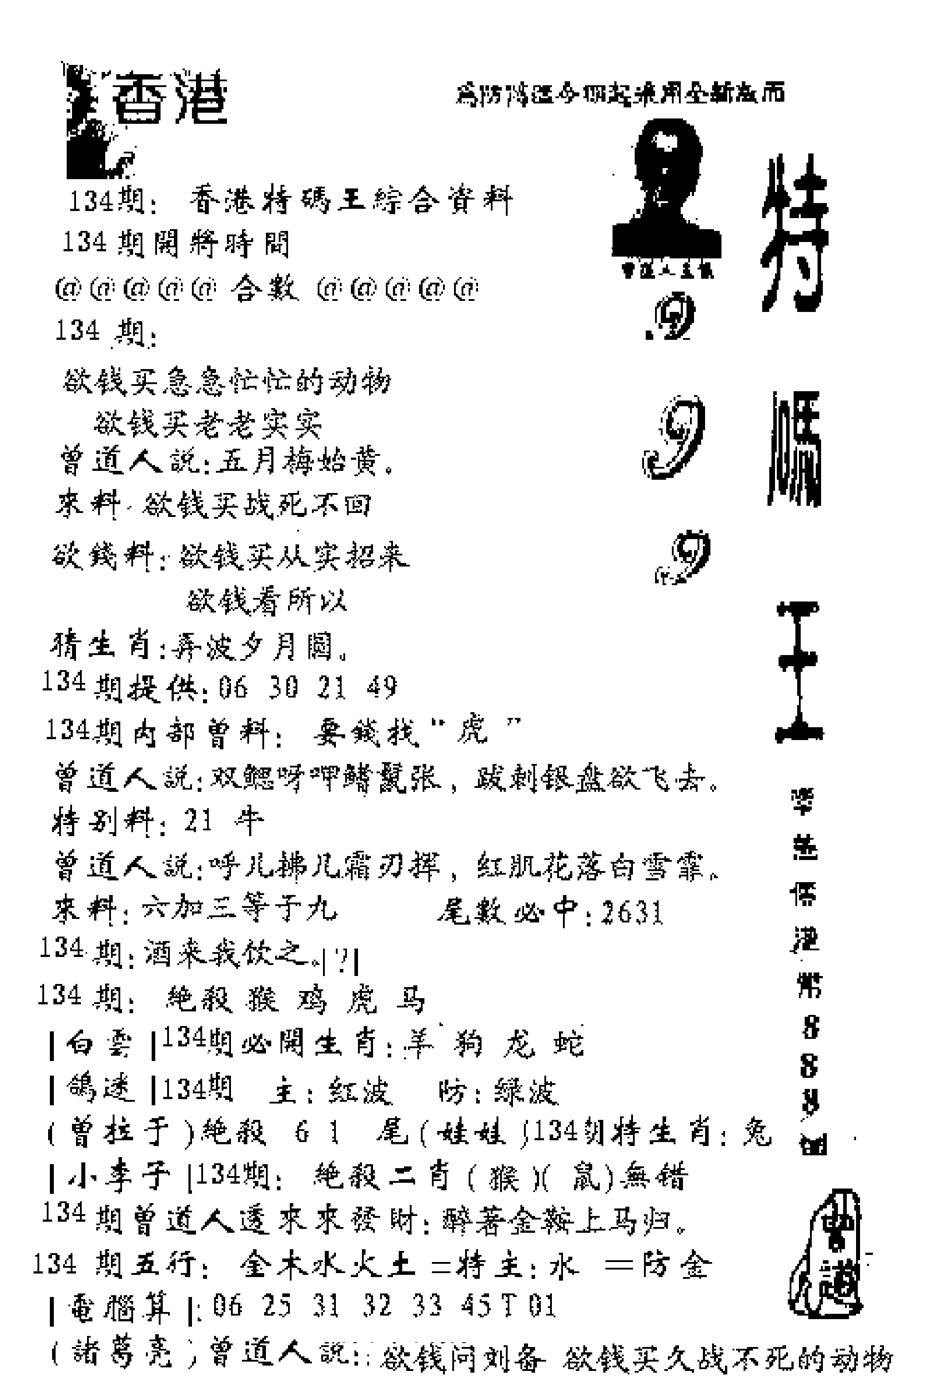 香港
為防濫今期起采用全新版面
134期：香港特碼王綜合資料
134期開將時間
@@@@@合數@@@@@
134期：
欲钱买急急忙忙的动物
欲钱买老老实实
曾道人説:五月梅始黄。
來料：欲钱买战死不回
欲錢料:欲钱买从实招来
欲钱看所以
猜生肖:弄波夕月圆。
134期提供:06 30 21 49
134期内部曾料：要錢找"虎"
曾道人説:双鳃呀呷鳍鬣张，跋刺银盘欲飞去。
特别料：21 牛
曾道人説:呼儿拂几霜刃挥，红肌花落白雪霏。
來料:六加三等于九 尾數必中:2631
134期:酒来我饮之。|?|
134期：絶殺 猴 鸡 虎 马
|白雲|134期必開生肖:羊 狗 龙 蛇
|鴿迷|134期 主:红波 防:绿波
(曾拉于)絶殺 6 1 尾(娃娃)134期特生肖:兔
|小李子|134期：絶殺二肖(猴)(鼠)無错
134期曾道人透來來發財:醉著金鞍上马归。
134期五行：金木水火土=特主:水 =防金
|電腦算|:06 25 31 32 33 45T01
(諸葛亮)曾道人説::欲钱问刘备 欲钱买久战不死的动物
曾道人主
9
9
9
特
碼
王
港
幣
8
8
8
曾道